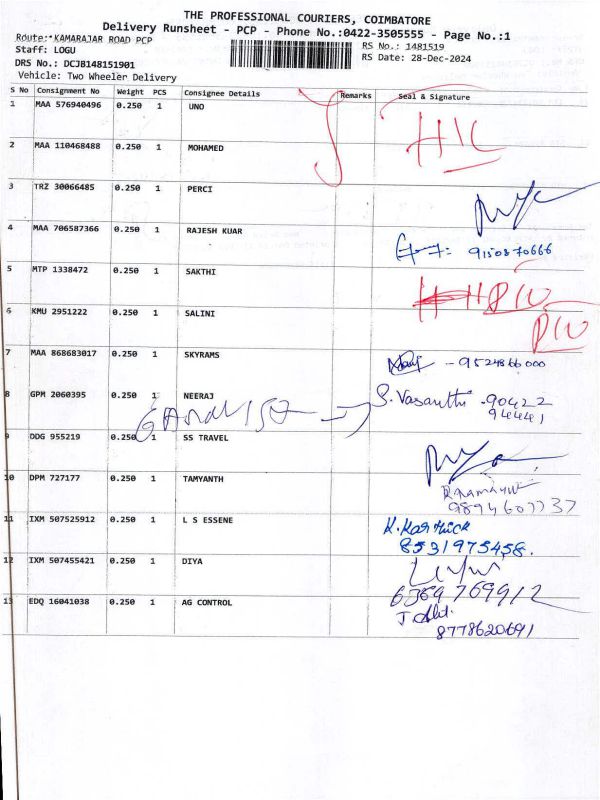 THE PROFESSIONAL COURIERS, COIMBATORE
Delivery Runsheet - PCP - Phone No.:0422-3505555 - Page No.:1
Route: KAMARAJAR ROAD PCP RS No.: 1481519
Staff: LOGU RS Date: 28-Dec-2024
DRS No.: DCJB148151901
Vehicle: Two Wheeler Delivery
S No Consignment No Weight PCS Consignee Details Remarks Seal & Signature
1 MAA 576940496 0.250 1 UNO
2 MAA 110468488 0.250 1 MOHAMED
3 TRZ 30066485 0.250 1 PERCI
4 MAA 706587366 0.250 1 RAJESH KUAR
9150870666
5 MTP 1338472 0.250 1 SAKTHI
6 KMU 2951222 0.250 1 SALINI
7 MAA 868683017 0.250 1 SKYRAMS
- 9524866000
8 GPM 2060395 0.250 1 NEERAJ S. Vasanthi - 90422
94441
9 DDG 955219 0.250 1 SS TRAVEL
10 DPM 727177 0.250 1 TAMYANTH
9894607737
11 IXM 507525912 0.250 1 L S ESSENE K. Karthick
8531975458.
12 IXM 507455421 0.250 1 DIYA
6369769912
13 EDQ 16041038 0.250 1 AG CONTROL
8778620691